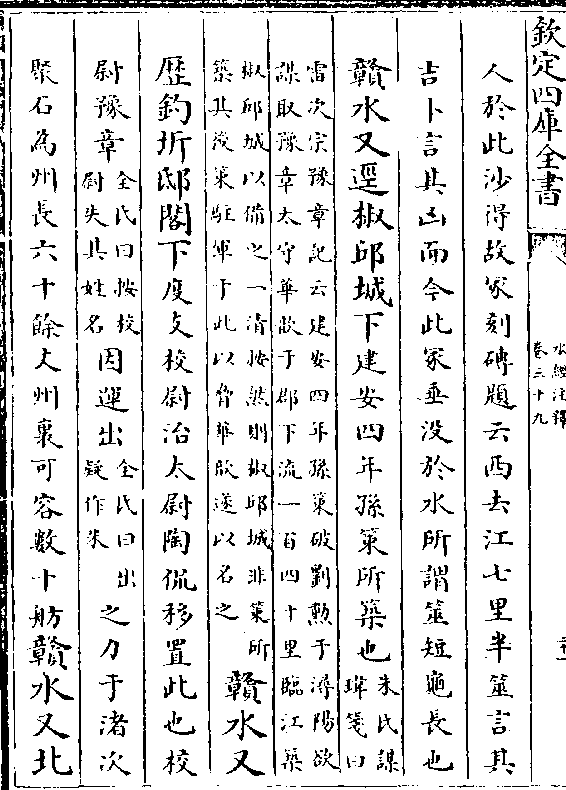 欽定四庫全書
水經注釋
卷三十九
人於此沙得故冢刻磚題云西去江七里半筮言其
吉卜言其凶而今此冢垂没於水所謂筮短龜長也
贑水又逕椒邱城下建安四年孫策所築也朱氏謀㙔箋曰
雷次宗豫章記云建安四年孫策破劉勲于潯陽欲
謀取豫章太守華歆于郡下流一百四十里臨江築
椒邱城以備之一清按然則椒邱城非策所
築其後策駐軍于此以脅華歆遂以名之贑水又
歴釣圻邸閣下度支校尉治太尉陶侃移置此也校
尉豫章全氏曰按校尉失其姓名因運出全氏曰出疑作朱之力于渚次
聚石為州長六十餘丈州裏可容數十舫贑水又北